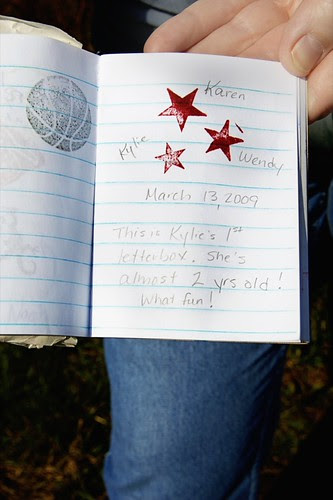 Karen
Kylie
Wendy
March 13, 2009
This is Kylie's 1st
letterbox. She's
almost 2 yrs old!
What fun!